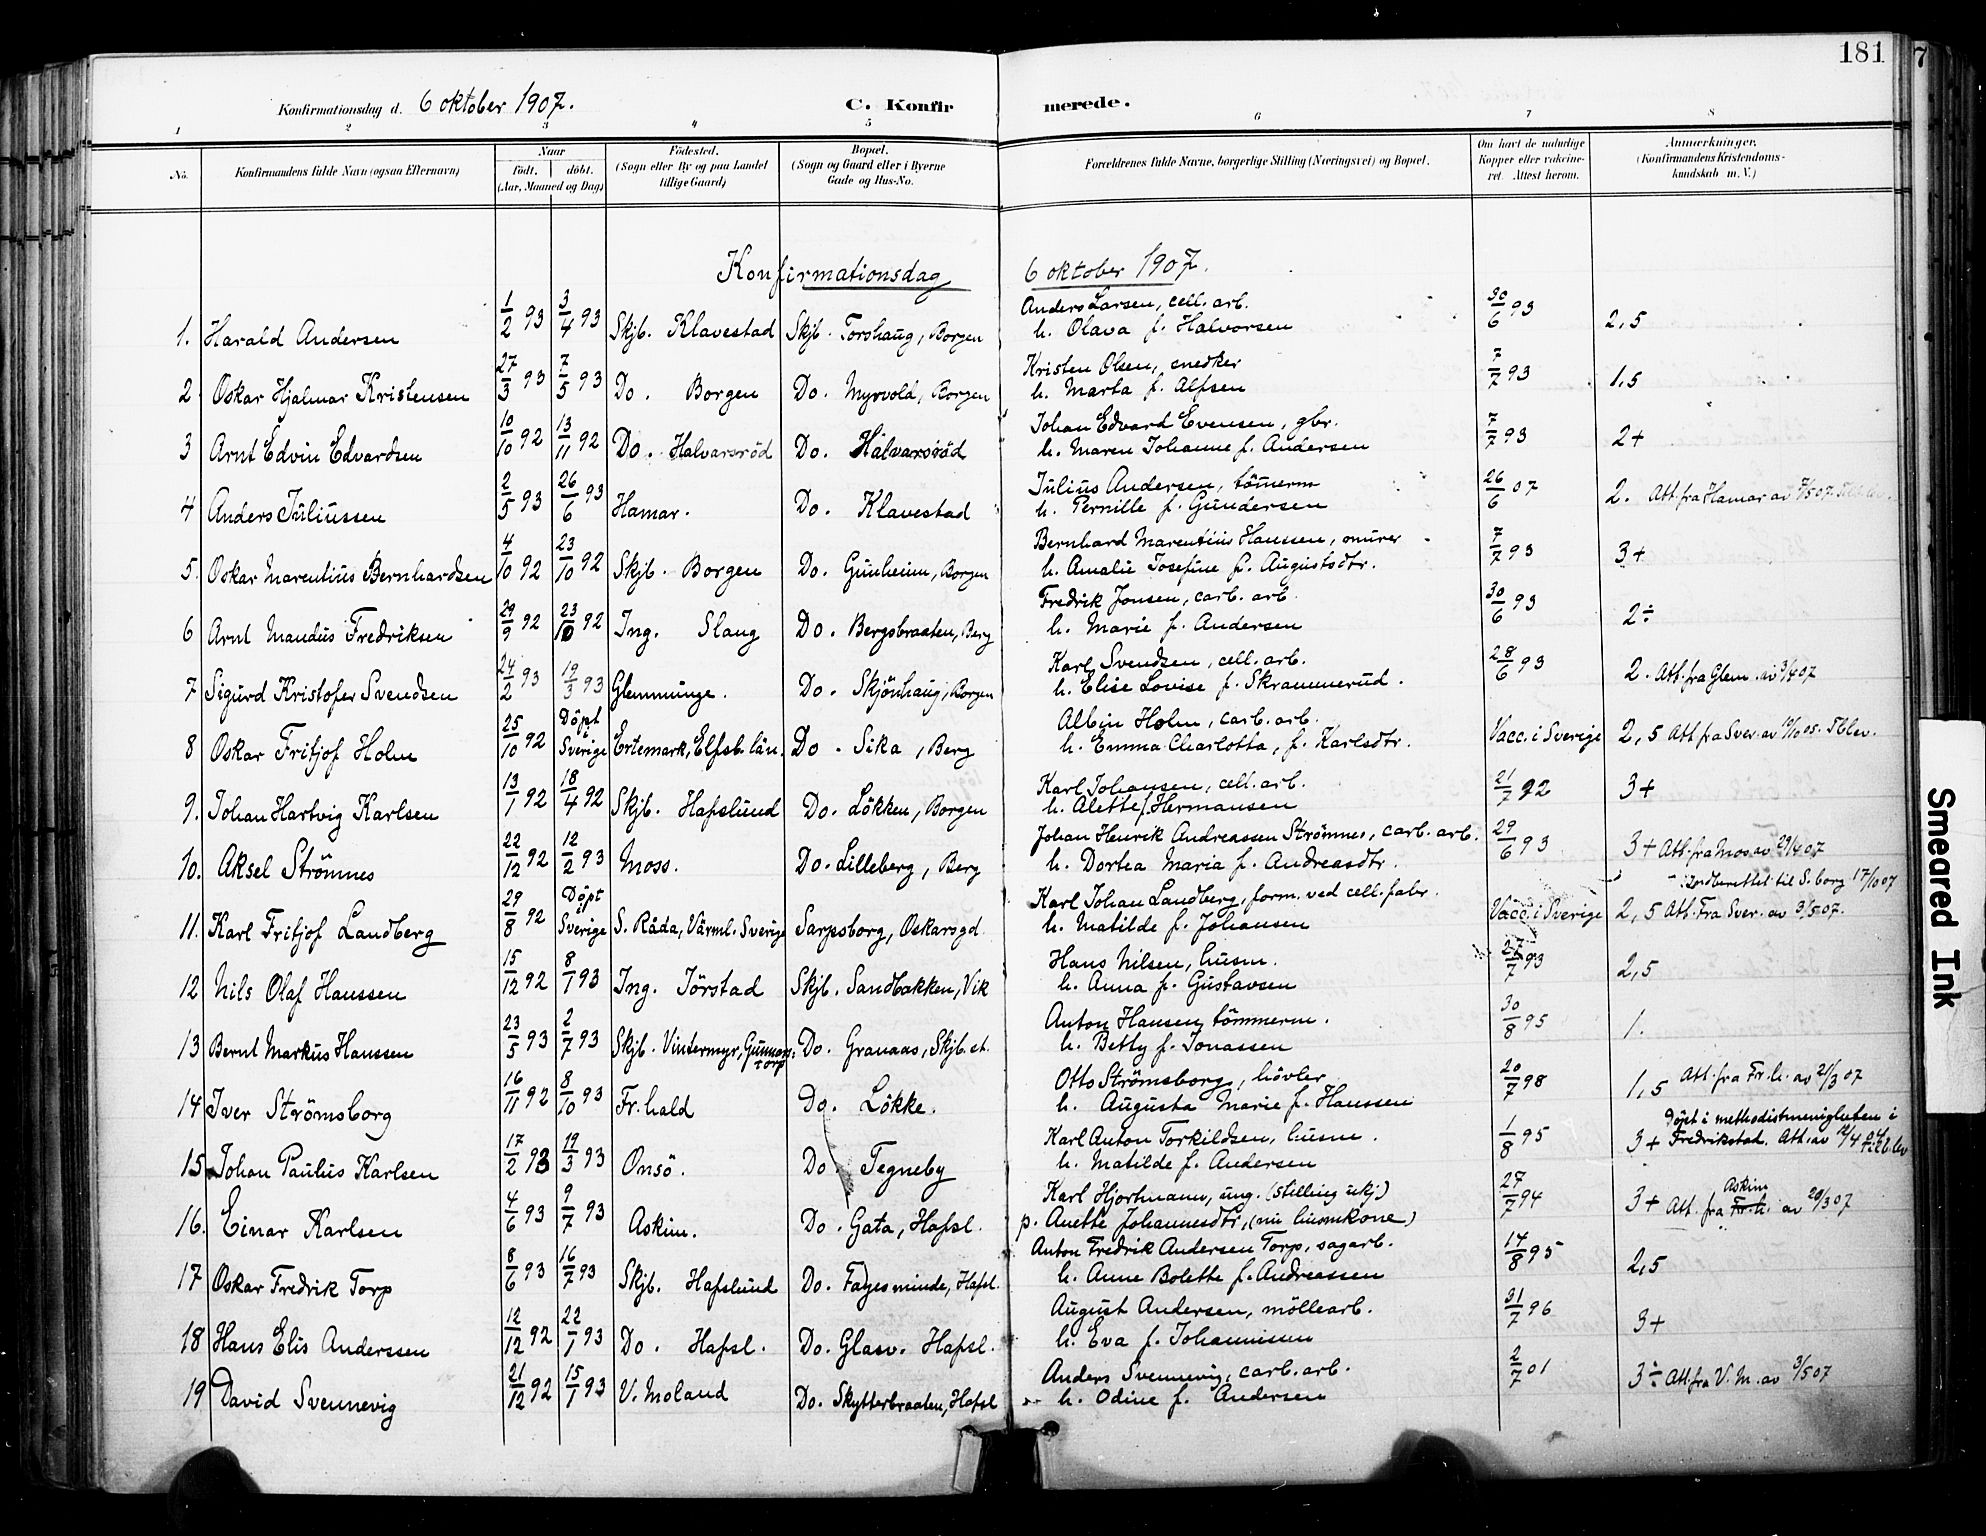 181
7
Konfirmationsdag d. 6 oktober 1907. C. Konfirmerede.
1 2 3 4 5 6 7 8
No. Konfirmandens fulde Navn (ogsaa Efternavn) Naar født. døbt. (Aar, Maaned og Dag) Fødested. (Sogn eller By og paa Landet tillige Gaard) Bopæl. (Sogn og Gaard eller i Byerne Gade og Hus-No. Forældrenes fulde Navne, borgerlige Stilling (Næringsvei) og Bopæl. Om havt de naturlige Kopper eller vakcineret. Attest herom. Anmærkninger. (Konfirmandens Kristendomskundskab m. V.)
Konfirmationsdag 6 oktober 1907.
1. Harald Andersen 1/2 93 3/4 93 Skjb. Klavestad Skjb. Torshaug, Borgen Anders Larsen, cell. arb. h. Olava f. Halvorsen 30/6 93 2,5
2. Oskar Hjalmar Kristensen 27/3 93 7/5 93 Do. Borgen Do. Myrvold, Borgen Kristen Olsen, snedker h. Marta f. Alfsen 7/7 93 1,5
3 Arnt Edvin Edvardsen 10/10 92 13/11 92 Do. Halvarsröd Do. Halvarsröd Johan Edvard Evensen, gbr. h. Maren Johanne f. Andersen 7/7 93 2+
4 Anders Juliussen 2/5 93 26/6 93 Hamar. Do. Klavestad Julius Andersen, tömerm h. Pernille f. Gundersen 26/6 07 2. Att. fra Hamar av 7/5 07
5. Oskar Marentius Bernhardsen 4/10 92 23/10 92 Skjb. Borgen Do. Gunheim, Borgen Bernhard Marentius Hanssen, murer h. Amalie Josefine f. Augustsdtr. 7/7 93 3+
6 Arnt Mandius Fredriksen 29/9 92 23/10 92 Ing. Slang Do. Bergsbraaten, Berg Fredrik Jonsen, carb. arb. h. Marie f. Andersen 30/6 93 2÷
7 Sigurd Kristofer Svendsen 24/2 93 19/3 93 Glemminge. Do. Skjönhaug, Borgen Karl Svendsen, cell. arb. h. Elise Lovise f. Skrammerud. 28/6 93 2. Att. fra Glem. av 3/4 07
8 Oskar Fritjof Holm 25/10 92 Döpt i Sverige Ertemark, Elfsb. län. Do. Sika, Berg Albin Holm, carb. arb. h. Emma Charlotta, f. Karlsdtr. Vacc. i Sverige 2,5 Att. fra Sver. av 10/10 05. Tblev.
9. Johan Hartvig Karlsen 13/1 92 18/4 92 Skjb. Hafslund Do. Lökken, Borgen Karl Johansen, cell. arb. h. Alette f. Hermansen 21/7 92 3+
10. Aksel Strömnes 22/12 92 12/2 93 Moss. Do. Lilleberg, Berg Johan Henrik Andreassen Strömnes, carb. arb. h. Dortea Maria f. Andreasdtr. 29/6 93 3+ Att. fra Mos av 29/4 07
11. Karl Fritjof Landberg 29/8 92 Döpt i Sverige S. Råda, Värml. Sverige Sarpsborg, Oskarsgd. Karl Johan Landberg, form. ved cell. fabr. h. Matilde f. Johansen Vacc. i Sverige 2,5 Att. Fra Sver. av 3/5 07. til S. borg 17/10 07
12 Nils Olaf Hanssen 15/12 92 8/1 93 Ing. Jörstad Skjb. Sandbakken, Vik Hans Nilsen, husm. h. Anna f. Gustavsen 27/7 93 2,5
13 Bernt Markus Hanssen 23/5 93 2/7 93 Skjb. Vintermyr, Gunnarstorp Do. Granaas, Skjb. et. Anton Hansen, tömmerm. h. Betty f. Jonassen 30/8 95 1.
14 Iver Strömsborg 16/11 92 8/10 93 Fr. hald Do. Lökke. Otto Strömsborg, hövler h. Augusta Marie f. Hanssen 20/7 98 1,5 Att. fra Fr. h. av 21/3 07
15 Johan Paulus Karlsen 17/2 93 19/3 93 Onsö. Do. Tegneby Karl Anton Torkildsen, husm. h. Matilde f. Andersen 1/8 95 3+ Döpt i methodistmenigheten i Fredrikstad. Att. av 12/4 04 tilb. lev
16. Einar Karlsen 4/6 93 9/7 93 Askim. Do. Gata, Hafsl. Karl Hjortmann, ung. (stilling ukj.) p. Anette Johannesdtr, (nu husmkone) 27/7 94 3+ Att. fra Fr. h. Askim av 20/3 07
17 Oskar Fredrik Torp 8/6 93 16/7 93 Skjb. Hafslund Do. Fagesminde, Hafsl. Anton Fredrik Andersen Torp, sagarb. h. Anne Bolette f. Andreassen 14/8 95 2,5
18 Hans Elis Anderssen 12/12 92 22/1 93 Do. Hafsl. Do. Glasv. Hafsl. August Andersen, möllearb. h. Eva f. Johannissen 31/7 96 3+
19 David Svennevig 21/12 92 15/1 93 V. Moland Do. Skytterbraaten, Hafsl Anders Svennevig, carb. arb. h. Odine f. Andersen 2/7 01 3÷ Att. fra V. M. av 3/5 07
Smeared Ink